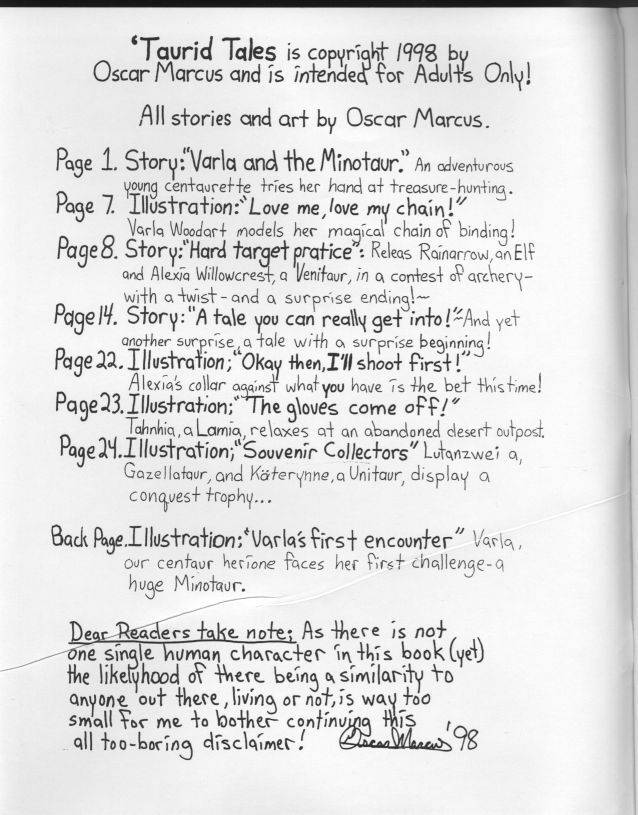 'Taurid Tales is copyright 1998 by
Oscar Marcus and is intended for Adults Only!
All stories and art by Oscar Marcus.
Page 1. Story:"Varla and the Minotaur." An adventurous
young centaurette tries her hand at treasure-hunting.
Page 7. Illustration:"Love me, love my chain!"
Varla Woodart models her magical chain of binding!
Page 8. Story:"Hard target pratice": Releas Rainarrow, an Elf
and Alexia Willowcrest, a Venitaur, in a contest of archery-
with a twist - and a surprise ending!~
Page 14. Story:"A tale you can really get into!"~And yet
another surprise, a tale with a surprise beginning!
Page 22. Illustration;"Okay then, I'll shoot first!"
Alexia's collar against what you have is the bet this time!
Page 23. Illustration;"The gloves come off!"
Tahnhia, a Lamia, relaxes at an abandoned desert outpost.
Page 24. Illustration;"Souvenir Collectors" Lutanzwei a,
Gazellataur, and Käterynne, a Unitaur, display a
conquest trophy...
Back Page. Illustration:"Varla's first encounter" Varla,
our centaur herione faces her first challenge-a
huge Minotaur.
Dear Readers take note; As there is not
one single human character in this book (yet)
the likelyhood of there being a similarity to
anyone out there, living or not, is way too
small for me to bother continuing this
all too-boring disclaimer! Oscar Marcus '98